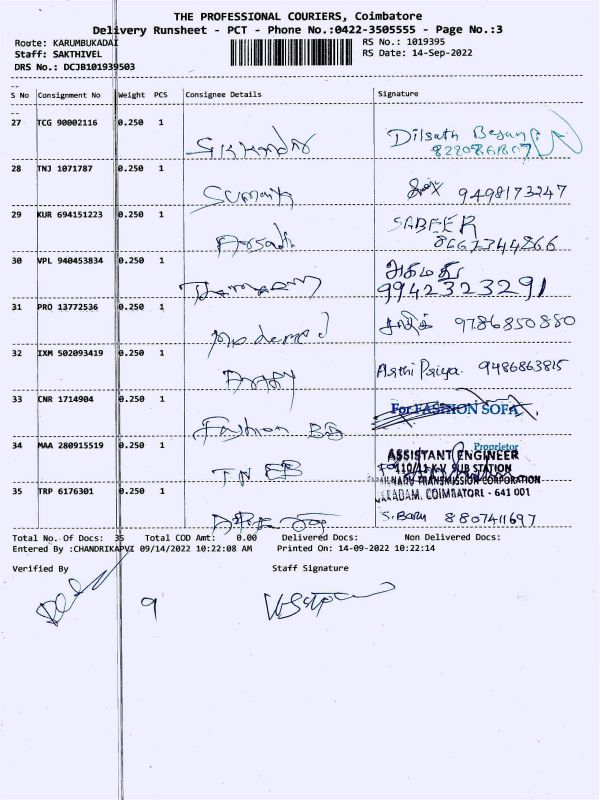 THE PROFESSIONAL COURIERS, Coimbatore
Delivery Runsheet - PCT - Phone No.:0422-3505555 - Page No.:3
Route: KARUMBUKADAI
RS No.: 1019395
Staff: SAKTHIVEL
RS Date: 14-Sep-2022
DRS No.: DCJB101939503
S No Consignment No Weight PCS Consignee Details Signature
27 TCG 90002116 0.250 1 Dilsath Begum
28 TNJ 1071787 0.250 1 9498173247
29 KUR 694151223 0.250 1 SABEER
8667344866
30 VPL 940453834 0.250 1 அகமது
9942323291
31 PRO 13772536 0.250 1 9786850880
32 IXM 502093419 0.250 1 Arthi Priya 9486863815
33 CNR 1714904 0.250 1 Fashion For FASHION SOFA
Proprietor
34 MAA 280915519 0.250 1 TN EB ASSISTANT ENGINEER
110/11 K.V SUB STATION
TAMILNADU TRANSMISSION CORPORATION
COIMBATORE - 641 001
35 TRP 6176301 0.250 1 S. Babu 8807411697
Total No. Of Docs: 35 Total COD Amt: 0.00 Delivered Docs: Non Delivered Docs:
Entered By :CHANDRIKAPVI 09/14/2022 10:22:08 AM Printed On: 14-09-2022 10:22:14
Verified By Staff Signature
9